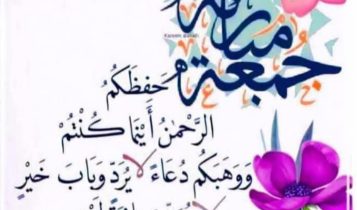 جمعة مباركة
حَفِظَكُمُ
الرَّحْمٰنُ أَيْنَمَا كُنْتُمْ
وَوَهَبَكُم دُعَاءً لَا يُرَدّ وَبَابَ خَيْرٍ